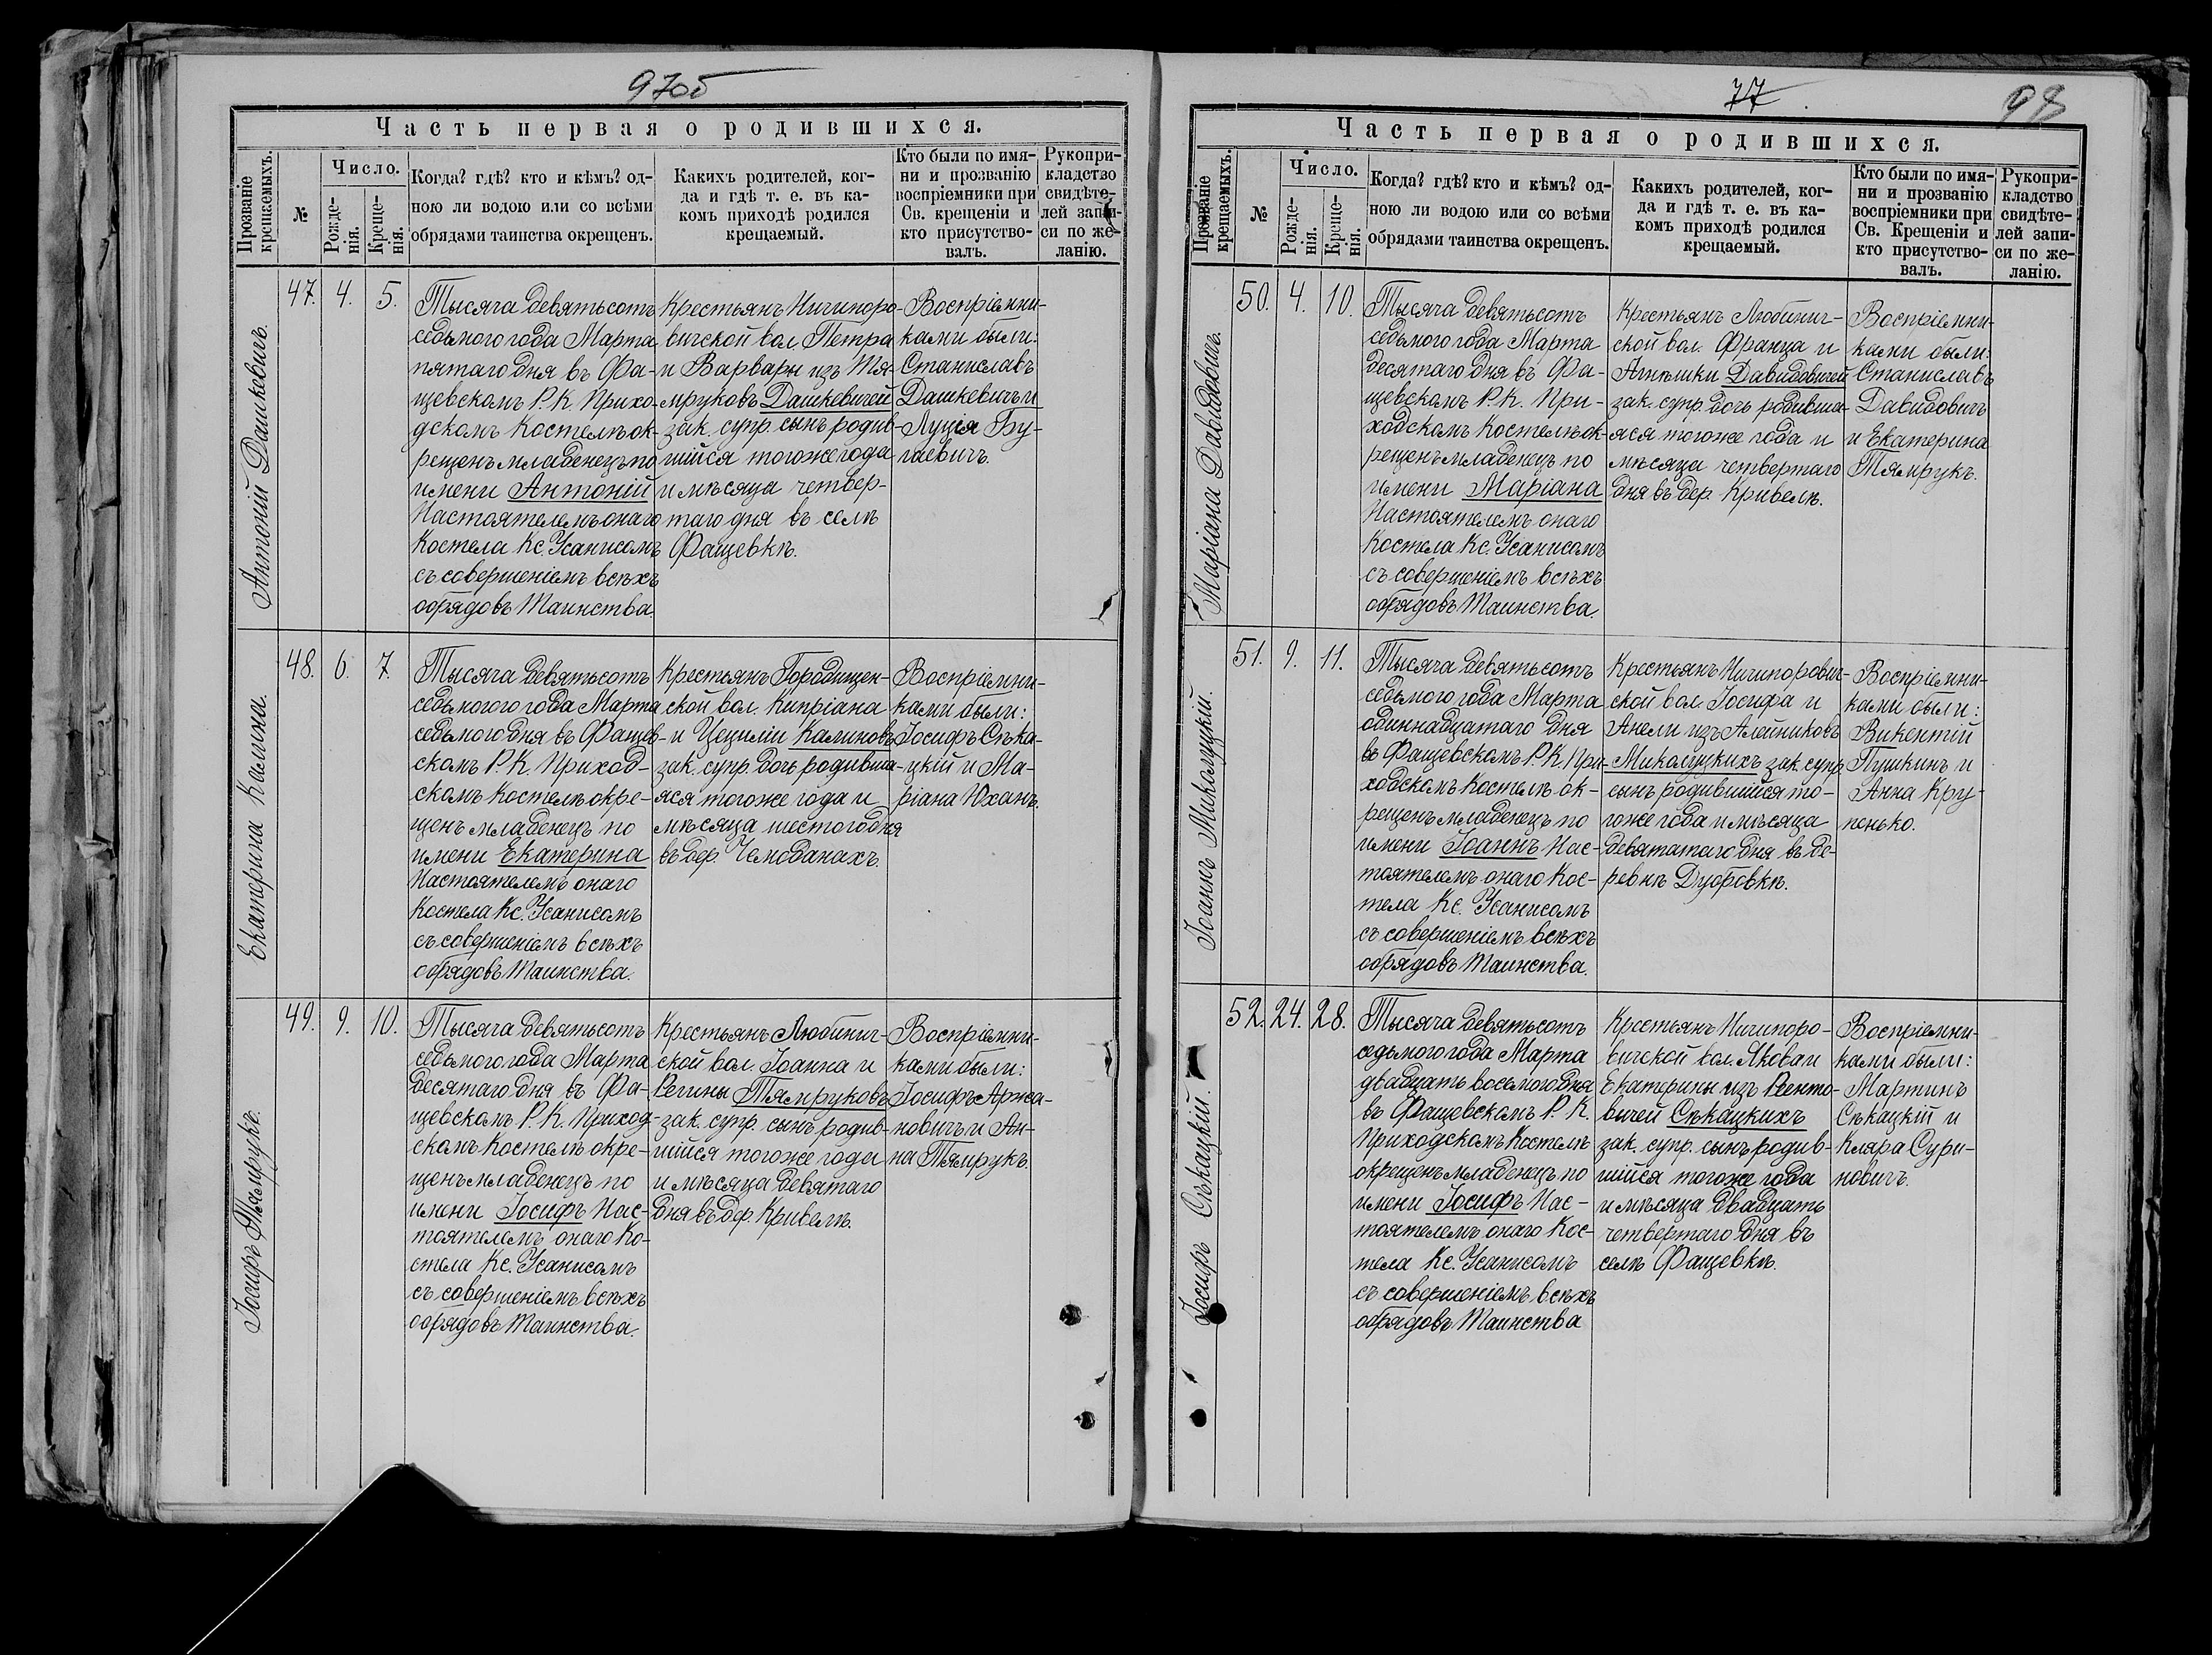 97об
Часть первая о родившихся.
Прозваніе крещаемыхъ.
№
Число.
Рожде-
нія.
Креще-
нія.
Когда? гдѣ? кто и кѣмъ? од-
ною ли водою или со всѣми
обрядами таинства окрещенъ.
Какихъ родителей, ког-
да и гдѣ т. е. въ ка-
комъ приходѣ родился
крещаемый.
Кто были по имя-
ни и прозванію
воспріемники при
Св. крещеніи и
кто присутство-
валъ.
Рукопри-
кладство
свидѣте-
лей запи-
си по же-
ланію.
Антоній Дашкевичъ.
47. 4. 5.
Тысяча девятьсотъ
седьмого года Марта
пятаго дня въ Фа-
щевскомъ Р. К. Прихо-
дскомъ Костелѣ ок-
рещенъ младенецъ по
имени Антоній
Настоятелемъ онаго
Костела Кс. Усанисомъ
съ совершеніемъ всѣхъ
обрядовъ Таинства.
Крестьянъ Ничипоро-
вичской вол. Петра
и Варвары изъ Тя-
мруковъ Дашкевичей
зак. супр. сынъ родив-
шійся тогоже года
и мѣсяца четвер-
таго дня въ селѣ
Фащевкѣ.
Воспріемни-
ками были:
Станиславъ
Дашкевичъ и
Луція Бу-
гаевичъ.
Екатерина Калина.
48. 6. 7.
Тысяча девятьсотъ
седьмогого года Марта
седьмого дня въ Фащев-
скомъ Р. К. Приход-
скомъ Костелѣ окре-
щенъ младенецъ по
имени Екатерина
Настоятелемъ онаго
Костела Кс. Усанисомъ
съ совершеніемъ всѣхъ
обрядовъ Таинства.
Крестьянъ Городищен-
ской вол. Кипріана
и Цециліи Калиновъ
зак. супр. дочь родивша-
яся тогоже года и
мѣсяца шестого дня
въ дер. Чемоданахъ.
Воспріемни-
ками были:
Іосифъ Сѣка-
цкій и Ма-
ріана Юханъ.
Іосифъ Тямрукъ.
49. 9. 10.
Тысяча девятьсотъ
седьмого года Марта
десятаго дня въ Фа-
щевскомъ Р. К. Приход-
скомъ Костелѣ окре-
щенъ младенецъ по
имени Іосифъ Нас-
тоятелемъ онаго Ко-
стела Кс. Усанисомъ
съ совершеніемъ всѣхъ
обрядовъ Таинства.
Крестьянъ Любинич-
ской вол. Іоанна и
Регины Тямруковъ
зак. супр. сынъ родив-
шійся тогоже года
и мѣсяца девятаго
дня въ дер. Кривелѣ.
Воспріемни-
ками были:
Іосифъ Аржа-
новичъ и Ан-
на Тямрукъ.
77
98
Часть первая о родившихся.
Прозваніе крещаемыхъ.
№
Число.
Рожде-
нія.
Креще-
нія.
Когда? гдѣ? кто и кѣмъ? од-
ною ли водою или со всѣми
обрядами таинства окрещенъ.
Какихъ родителей, ког-
да и гдѣ т. е. въ ка-
комъ приходѣ родился
крещаемый.
Кто были по имя-
ни и прозванію
воспріемники при
Св. Крещеніи и
кто присутство-
валъ.
Рукопри-
кладство
свидѣте-
лей запи-
си по же-
ланію.
Маріана Давидовичъ.
50. 4. 10.
Тысяча девятьсотъ
седьмого года Марта
десятаго дня въ Фа-
щевскомъ Р. К. При-
ходскомъ Костелѣ ок-
рещенъ младенецъ по
имени Маріана
Настоятелемъ онаго
Костела Кс. Усанисомъ
съ совершеніемъ всѣхъ
обрядовъ Таинства.
Крестьянъ Любинич-
ской вол. Франца и
Агнѣшки Давидовичей
зак. супр. дочь родивша-
яся тогоже года и
мѣсяца четвертаго
дня въ дер. Кривелѣ.
Воспріемни-
ками были:
Станиславъ
Давидовичъ
и Екатерина
Тямрукъ.
Іоаннъ Миколуцкій.
51. 9. 11.
Тысяча девятьсотъ
седьмого года Марта
одиннадцатаго дня
въ Фащевскомъ Р. К. При-
ходскомъ Костелѣ ок-
рещенъ младенецъ по
имени Іоаннъ Нас-
тоятелемъ онаго Кос-
тела Кс. Усанисомъ
съ совершеніемъ всѣхъ
обрядовъ Таинства.
Крестьянъ Ничипорович-
ской вол. Іосифа и
Анели изъ Алейниковъ
Миколуцкихъ зак. супр.
сынъ родившійся то-
гоже года и мѣсяца
девятатаго дня въ де-
ревнѣ Дубровкѣ.
Воспріемни-
ками были:
Викентій
Пушкинъ и
Анна Кру-
пенько.
Іосифъ Сѣкацкій.
52. 24. 28.
Тысяча девятьсотъ
седьмого года Марта
двадцать восьмого дня
въ Фащевскомъ Р. К.
Приходскомъ Костелѣ
окрещенъ младенецъ по
имени Іосифъ Нас-
тоятелемъ онаго Кос-
тела Кс. Усанисомъ
съ совершеніемъ всѣхъ
обрядовъ Таинства
Крестьянъ Ничипоро-
вичской вол. Якова и
Екатерины изъ Венто-
вичей Сѣкацкихъ
зак. супр. сынъ родив-
шійся тогоже года
и мѣсяца двадцать
четвертаго дня въ
селѣ Фащевкѣ.
Воспріемни-
ками были:
Мартинъ
Сѣкацкій и
Кляра Сури-
новичъ.